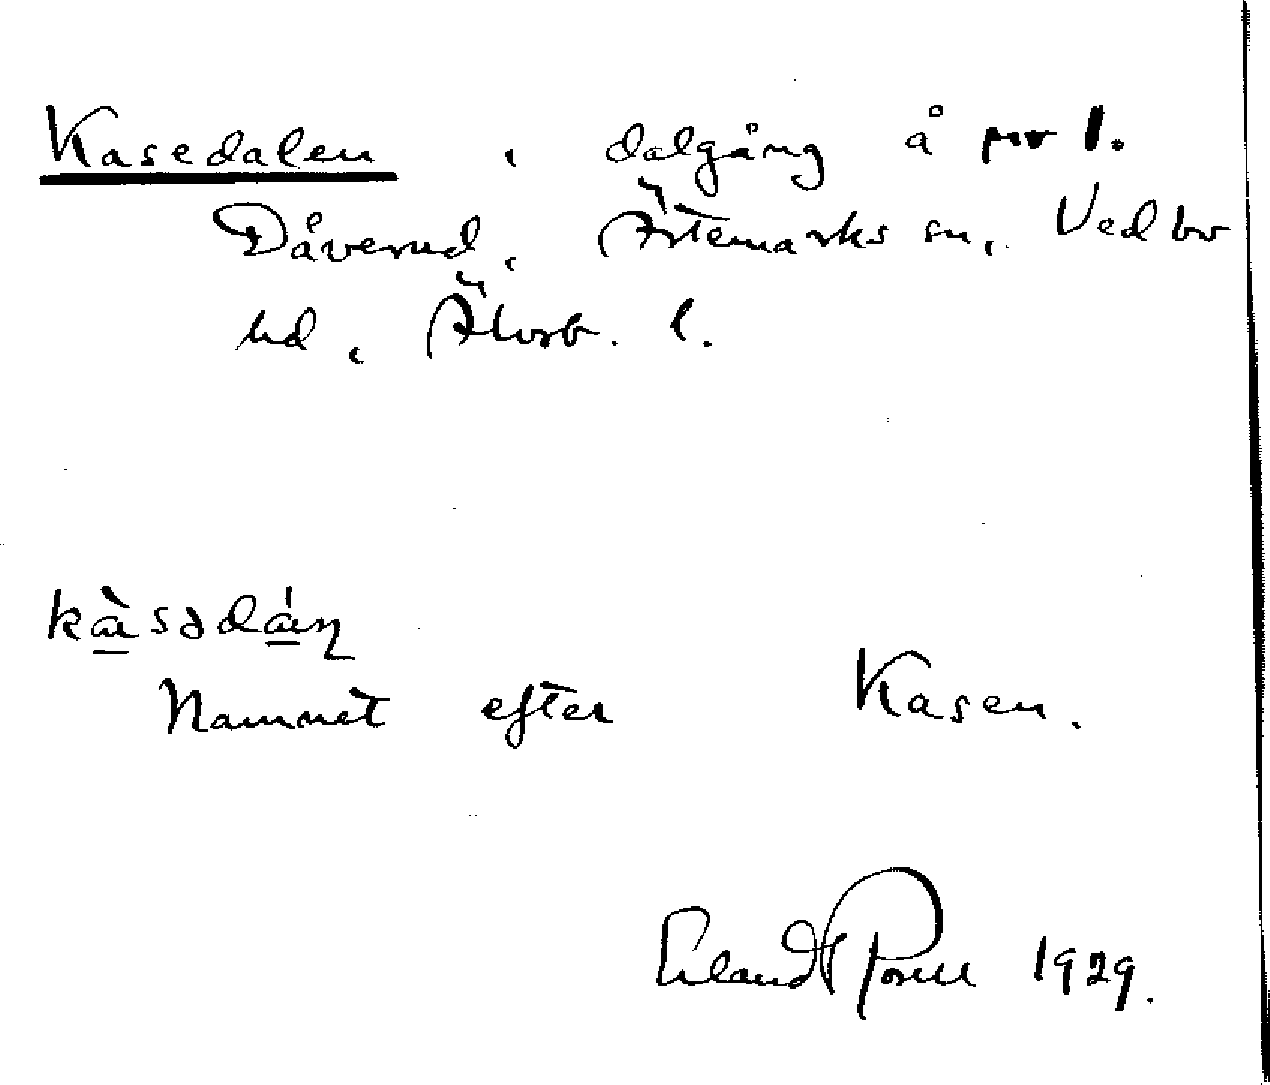 Kasedalen, dalgång å nr 1.
Dåverud, Ärtemarks sn, Vedbo
hd, Älvsb. l.
kàsədáṇ
Namnet efter Kasen.
Erland Rosell 1929.